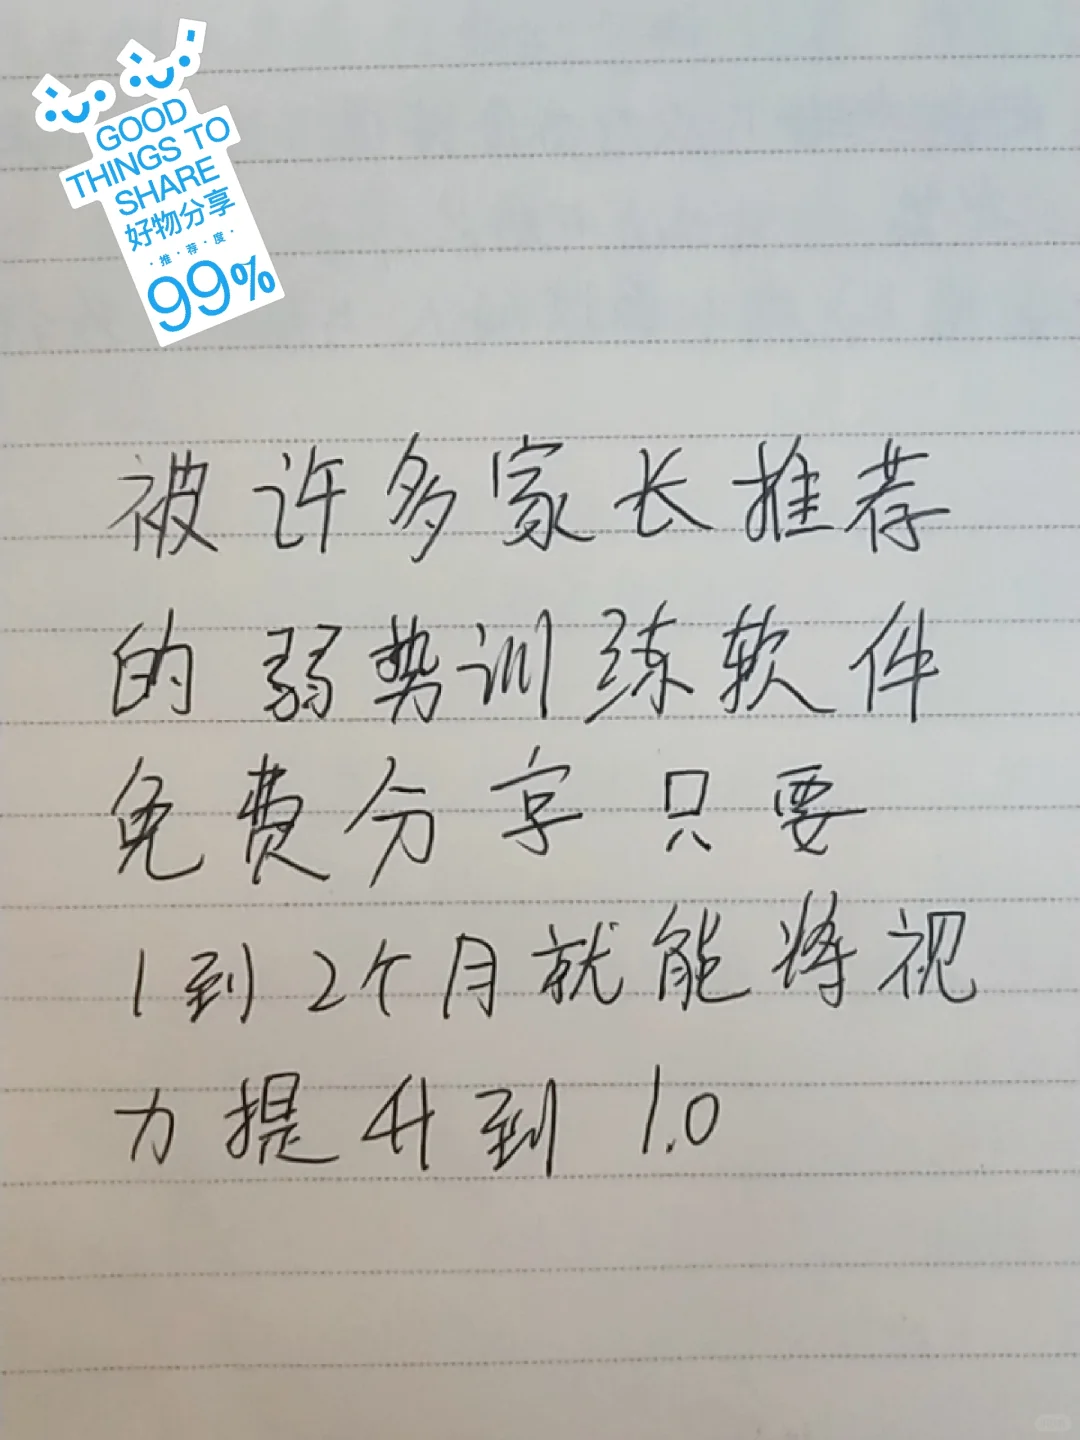 GOOD
THINGS TO
SHARE
好物分享
·推·荐·度·
99%
被许多家长推荐
的弱势训练软件
免费分享只要
1到2个月就能将视
力提升到1.0